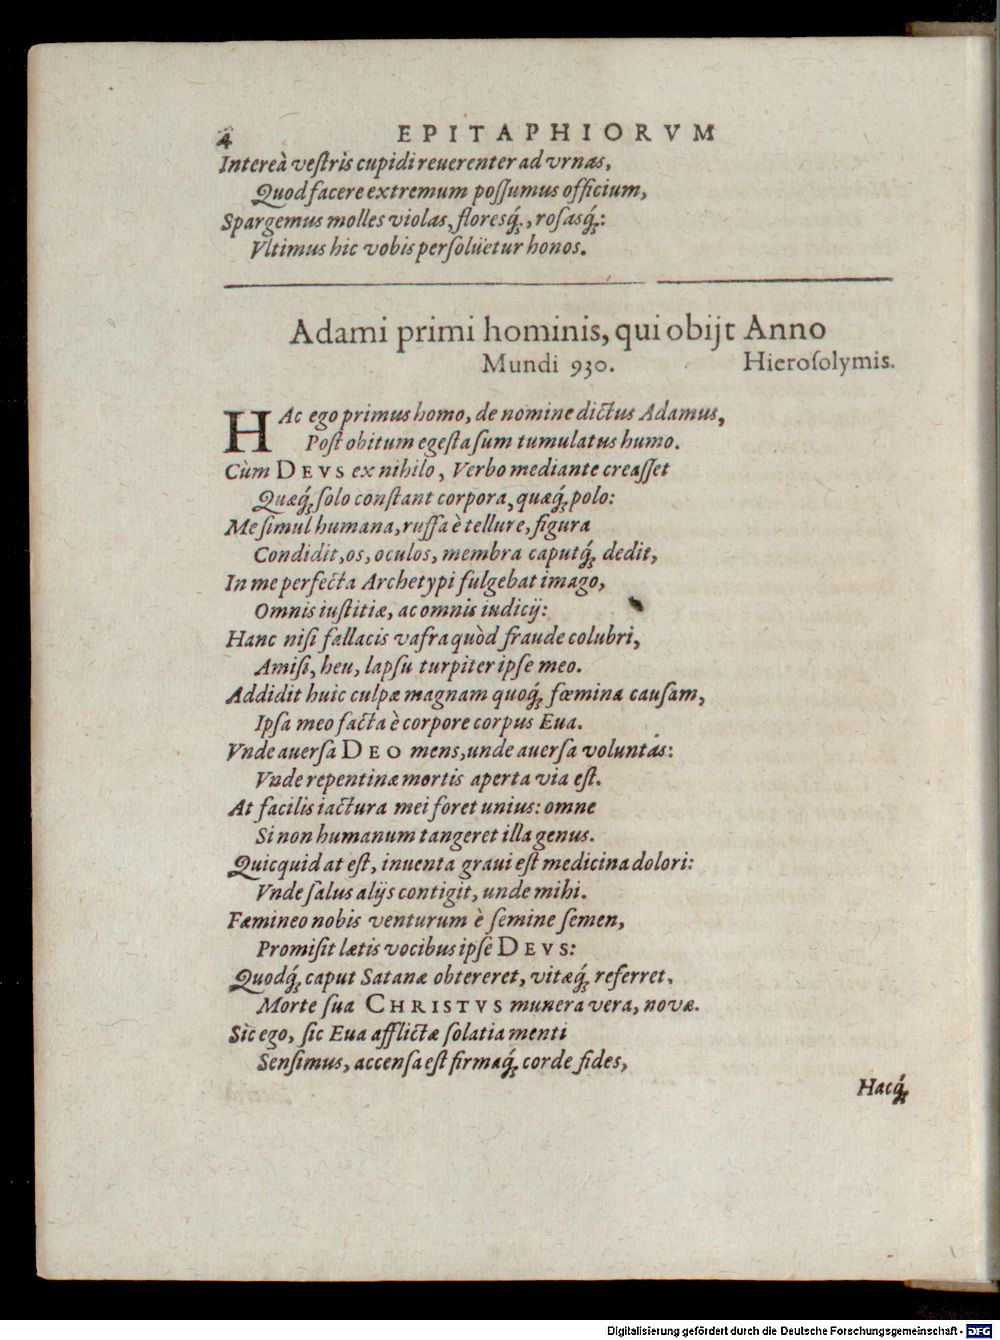 4 EPITAPHIORVM
Intereà veſtris cupidi reuerenter ad vrnas,
Quod facere extremum poſſumus officium,
Spargemus molles violas, floresq́;, roſasq́;:
Vltimus hic vobis perſolüetur honos.
Adami primi hominis, qui obijt Anno
Mundi 930. Hieroſolymis.
HAc ego primus homo, de nomine dictus Adamus,
Poſt obitum egeſta ſum tumulatus humo.
Cùm DEVS ex nihilo, Verbo mediante creaſſet
Quæq́; ſolo conſtant corpora, quæq́; polo:
Me ſimul humana, ruffa è tellure, figura
Condidit, os, oculos, membra caputq́; dedit,
In me perfecta Archetypi fulgebat imago,
Omnis iuſtitiæ, ac omnis iudicij:
Hanc niſi fallacis vafra quòd fraude colubri,
Amiſi, heu, lapſu turpiter ipſe meo.
Addidit huic culpæ magnam quoq́; fœmina cauſam,
Ipſa meo facta è corpore corpus Eua.
Vnde auerſa DEO mens, unde auerſa voluntas:
Vnde repentinæ mortis aperta via eſt.
At facilis iactura mei foret unius: omne
Si non humanum tangeret illa genus.
Quicquid at eſt, inuenta graui eſt medicina dolori:
Vnde ſalus alijs contigit, unde mihi.
Fæmineo nobis venturum è ſemine ſemen,
Promiſit lætis vocibus ipſe DEVS:
Quodq́; caput Satanæ obtereret, vitæq́; referret,
Morte ſua CHRISTVS munera vera, novæ.
Sic ego, ſic Eua afflictæ ſolatia menti
Senſimus, accenſa eſt firmaq́; corde fides,
Hacq́;
Digitalisierung gefördert durch die Deutsche Forschungsgemeinschaft - DFG